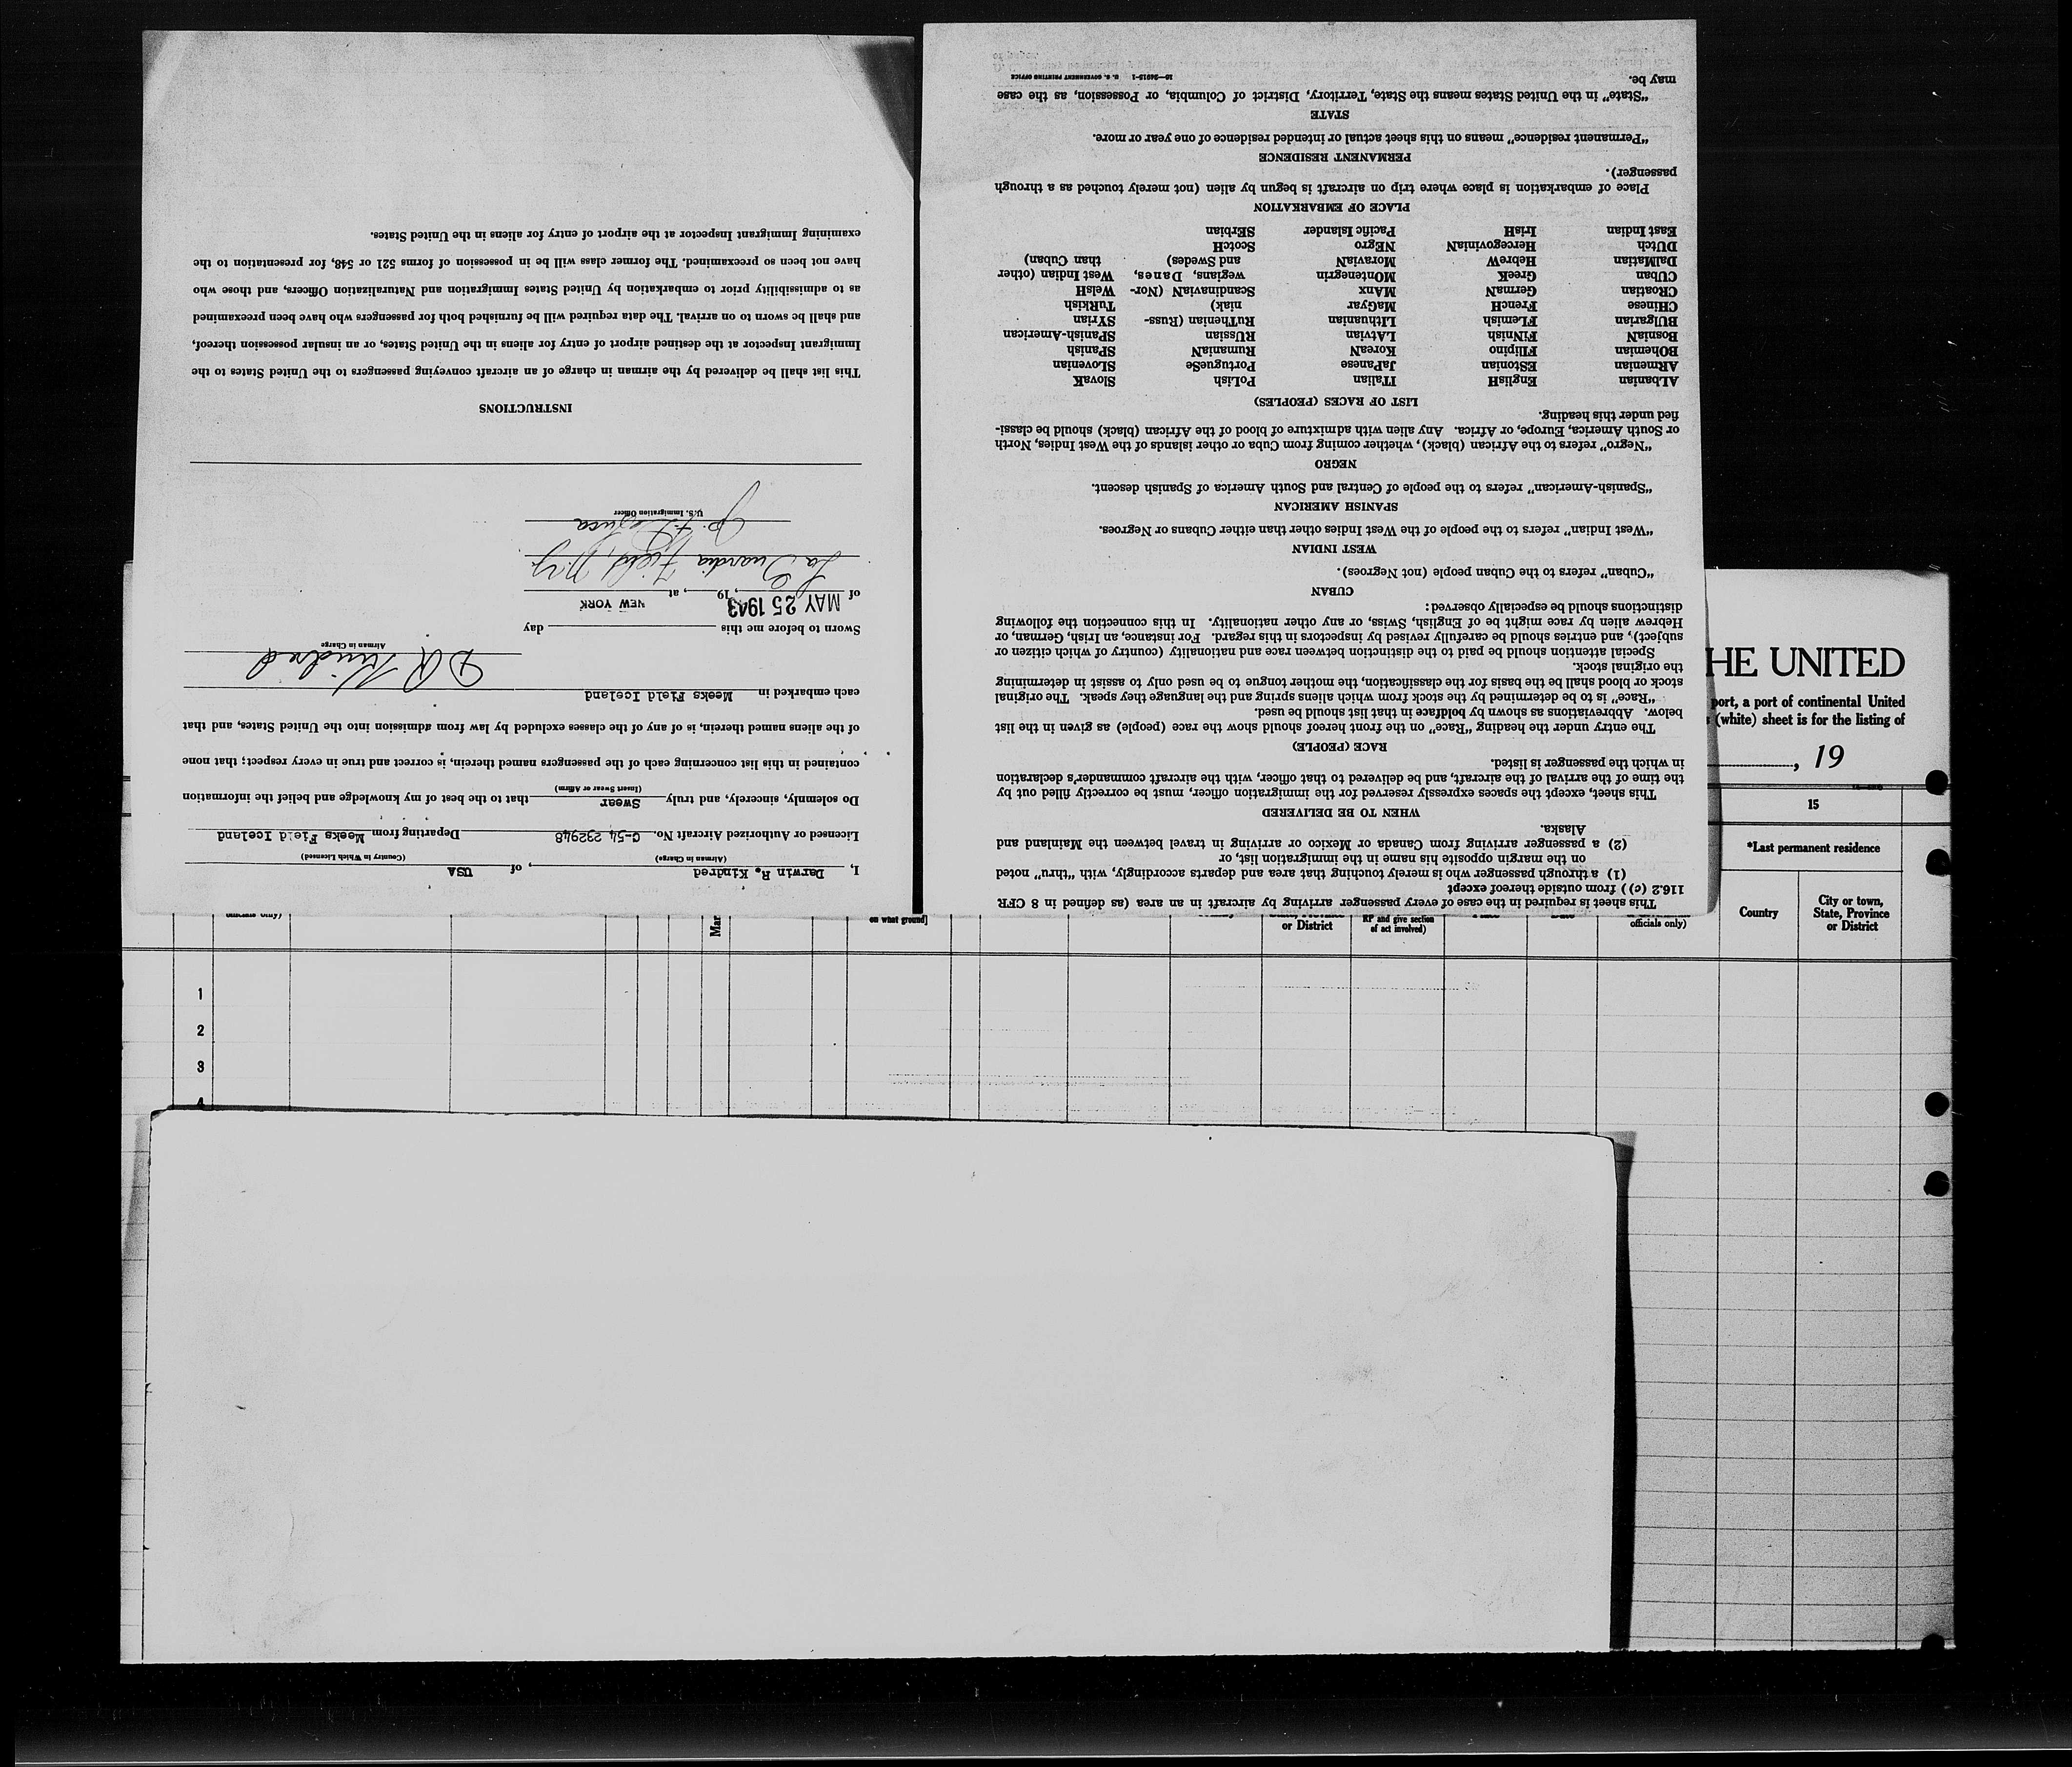 This sheet is required in the case of every passenger arriving by aircraft in an area (as defined in 8 CFR
116.2 (c)) from outside thereof except
(1) a through passenger who is merely touching that area and departs accordingly, with "thru" noted
on the margin opposite his name in the immigration list, or
(2) a passenger arriving from Canada or Mexico or arriving in travel between the Mainland and
Alaska.
WHEN TO BE DELIVERED
This sheet, except the spaces expressly reserved for the immigration officer, must be correctly filled out by
the time of the arrival of the aircraft, and be delivered to that officer, with the aircraft commander's declaration
in which the passenger is listed.
RACE (PEOPLE)
The entry under the heading "Race" on the front hereof should show the race (people) as given in the list
below. Abbreviations as shown by boldface in that list should be used.
"Race" is to be determined by the stock from which aliens spring and the language they speak. The original
stock or blood shall be the basis for the classification, the mother tongue to be used only to assist in determining
the original stock.
Special attention should be paid to the distinction between race and nationality (country of which citizen or
subject), and entries should be carefully revised by inspectors in this regard. For instance, an Irish, German, or
Hebrew alien by race might be of English, Swiss, or any other nationality. In this connection the following
distinctions should be especially observed:
CUBAN
"Cuban" refers to the Cuban people (not Negroes).
WEST INDIAN
"West Indian" refers to the people of the West Indies other than either Cubans or Negroes.
SPANISH AMERICAN
"Spanish-American" refers to the people of Central and South America of Spanish descent.
NEGRO
"Negro" refers to the African (black), whether coming from Cuba or other islands of the West Indies, North
or South America, Europe, or Africa. Any alien with admixture of blood of the African (black) should be classi-
fied under this heading.
LIST OF RACES (PEOPLES)
ALbanian EnglisH ITalian PoLish SlovaK
ARmenian EStonian JaPanese PortugueSe SLOvenian
BOhemian FIlipino KoreaN RumaniaN SPanish
BosniaN FiNnish LAtvian RUssian SPanish-American
BUlgarian FLemish LIthuanian RuThenian (Russ- SYrian
CHinese FrencH MaGyar niak) TuRkish
CRoatian GermaN MAnx ScandinaviaN (Nor- WelsH
CUban GreeK MOntenegrin wegians, Danes, West Indian (other
DalMatian HebreW MoraviaN and Swedes) than Cuban)
DUtch HercegoviniaN NEgro ScotcH
East Indian IrisH Pacific Islander SErbian
PLACE OF EMBARKATION
Place of embarkation is place where trip on aircraft is begun by alien (not merely touched as a through
passenger).
PERMANENT RESIDENCE
"Permanent residence" means on this sheet actual or intended residence of one year or more.
STATE
"State" in the United States means the State, Territory, District of Columbia, or Possession, as the case
may be.
16—24915-1 U. S. GOVERNMENT PRINTING OFFICE
I, Darwin R. Kindred, of USA
(Airman in Charge) (Country in Which Licensed)
Licensed or Authorized Aircraft No. C-54 232948 Departing from Meeks Field Iceland
Do solemnly, sincerely, and truly Swear that to the best of my knowledge and belief the information
(Insert Swear or Affirm)
contained in this list concerning each of the passengers named therein, is correct and true in every respect; that none
of the aliens named therein, is of any of the classes excluded by law from admission into the United States, and that
each embarked in Meeks Field Iceland
D R Kindred
Airman in Charge
Sworn to before me this day
of MAY 25 1943, 19, at NEW YORK
La Guardia Field, N.Y.
U.S. Immigration Officer
INSTRUCTIONS
This list shall be delivered by the airman in charge of an aircraft conveying passengers to the United States to the
Immigrant Inspector at the destined airport of entry for aliens in the United States, or an insular possession thereof,
and shall be sworn to on arrival. The data required will be furnished both for passengers who have been preexamined
as to admissibility prior to embarkation by United States Immigration and Naturalization Officers, and those who
have not been so preexamined. The former class will be in possession of forms 521 or 548, for presentation to the
examining Immigrant Inspector at the airport of entry for aliens in the United States.
HE UNITED
port, a port of continental United
(white) sheet is for the listing of
, 19
15
*Last permanent residence
Country
City or town,
State, Province
or District
officials only)
Mar
on what ground]
or District
RP and give section
of act involved)
1
2
3
4